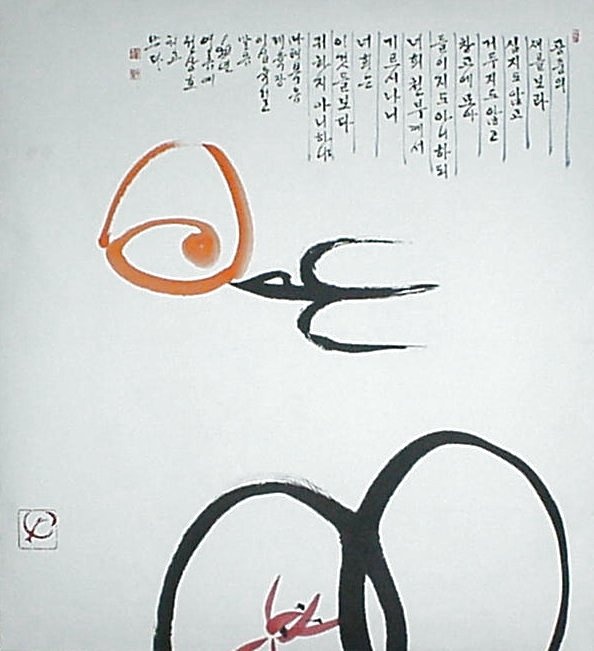 공중의
새를 보라
심지도 않고
거두지도 않고
창고에 모아
들이지도 아니하되
너희 천부께서
기르시나니
너희는
이것들보다
귀하지 아니하냐
마태복음
제육장
이십육절
말씀
여름에
쓰다